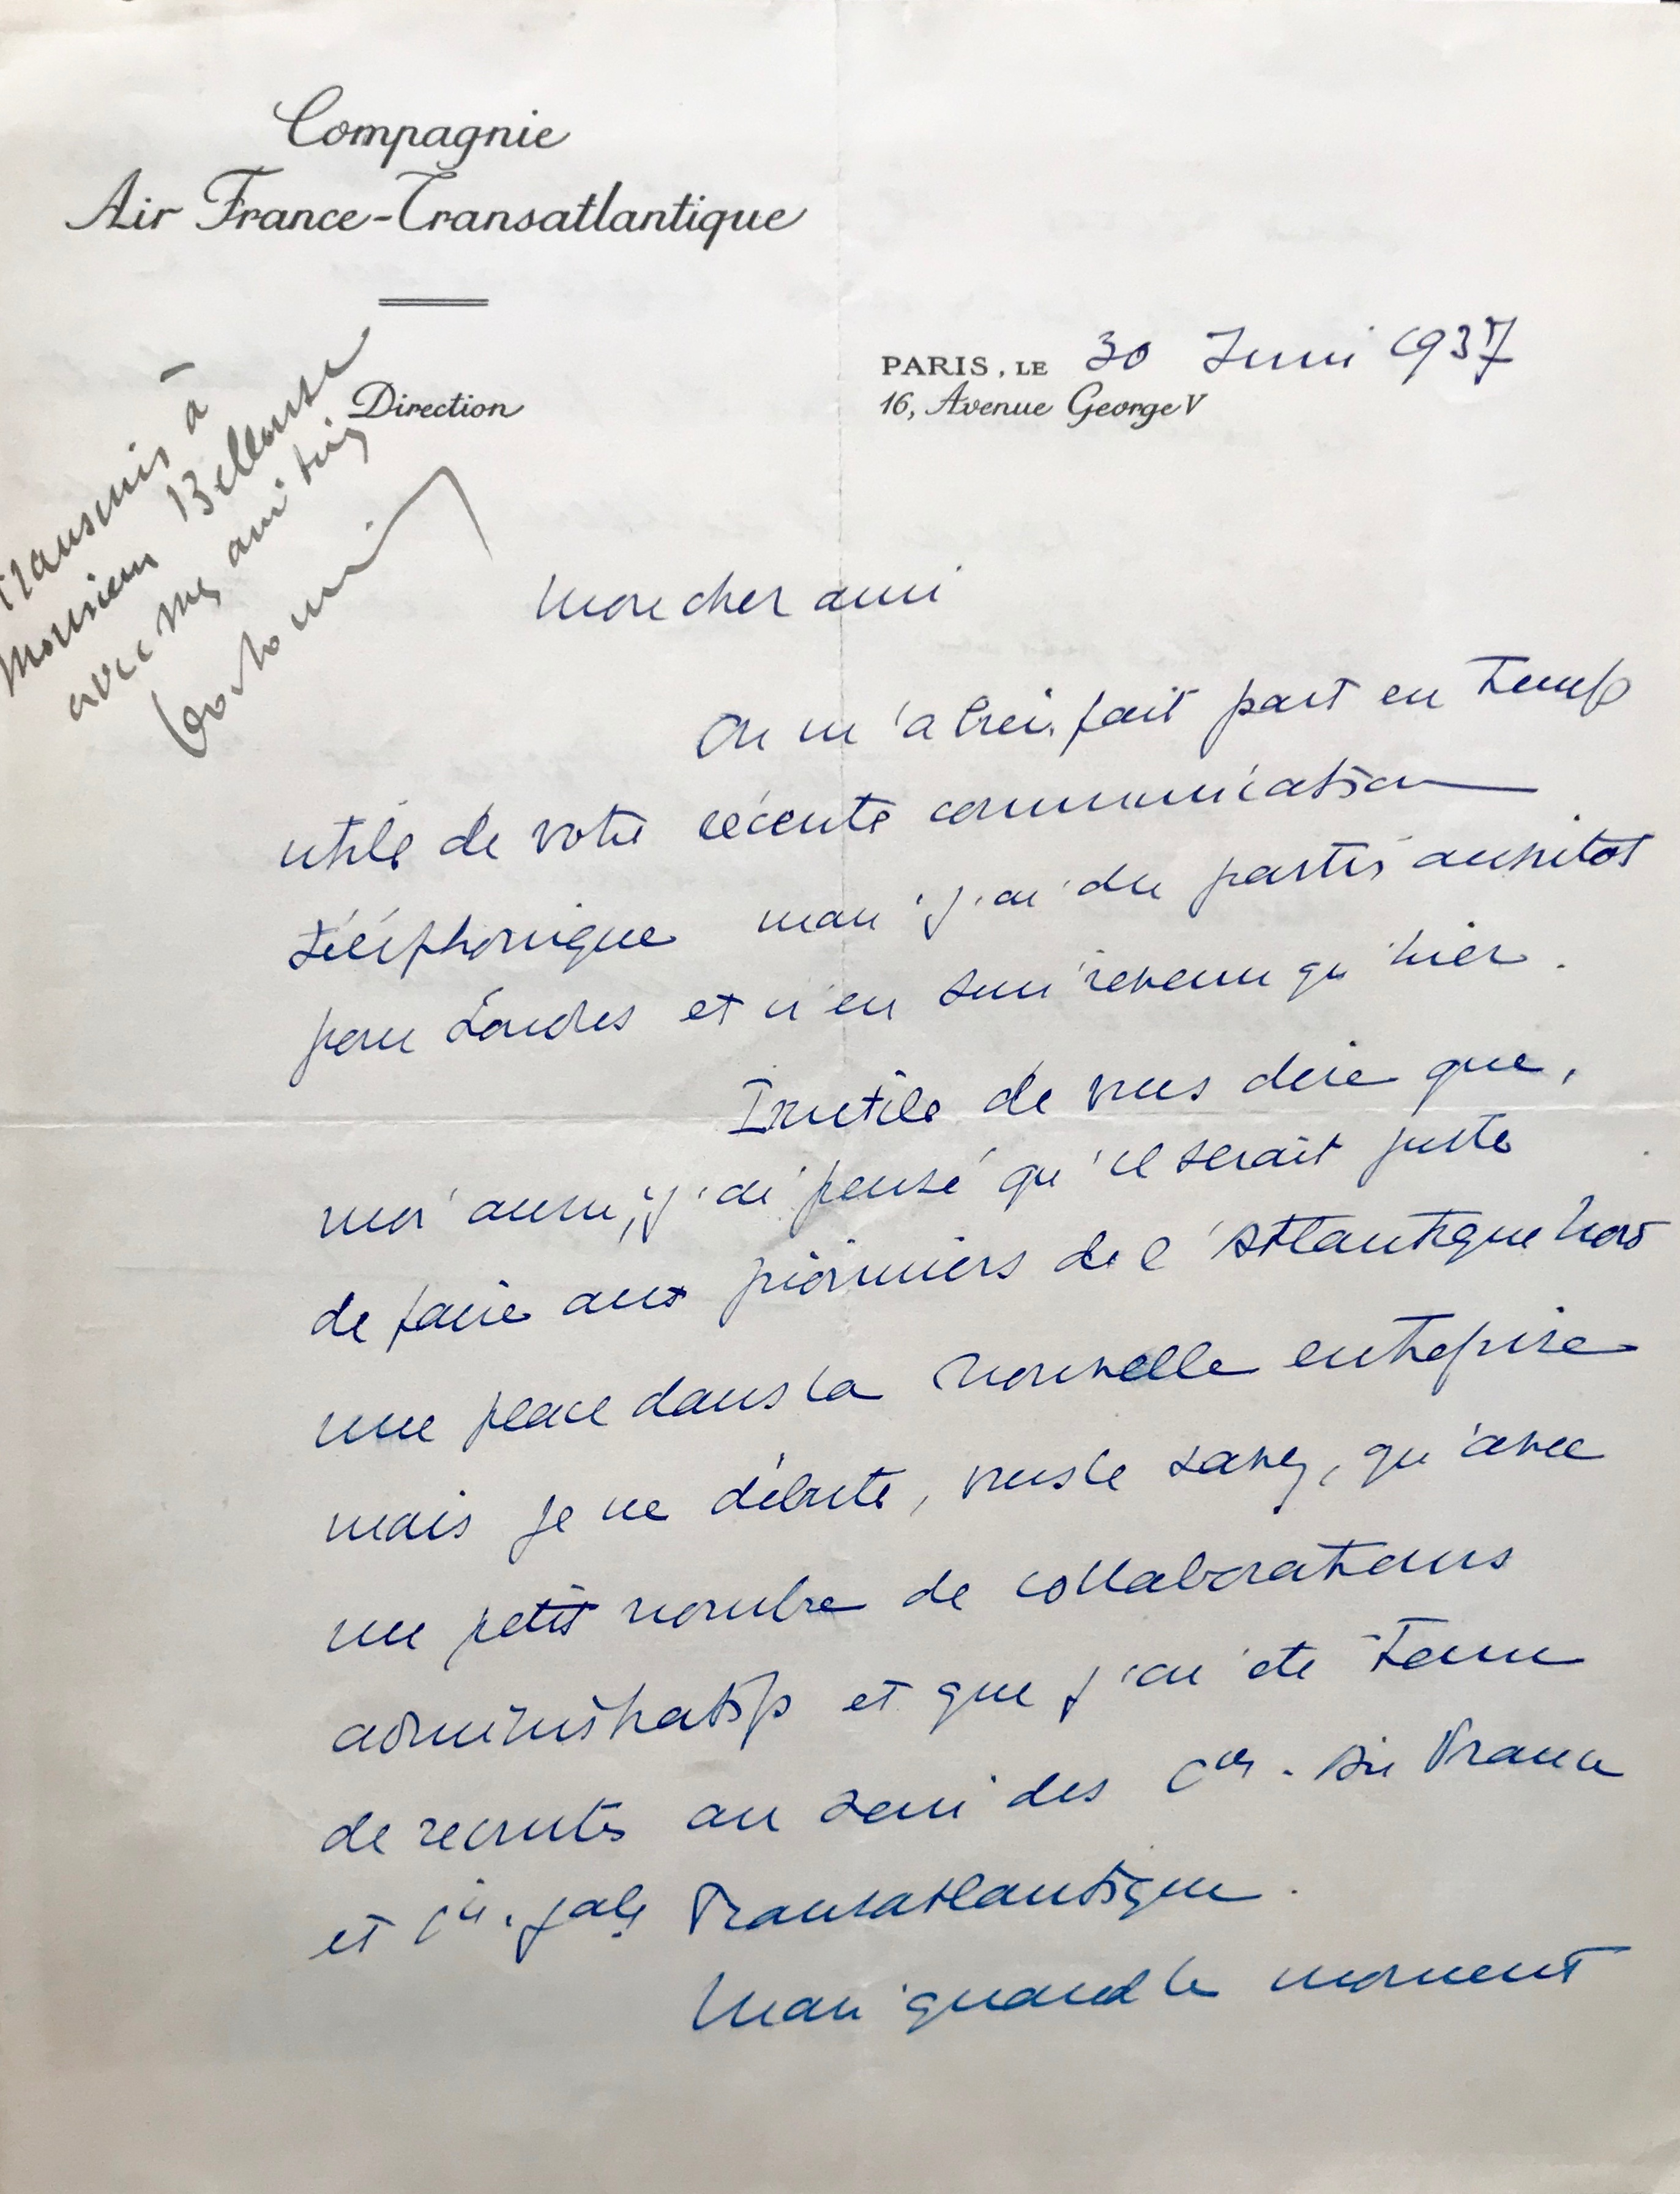 Compagnie
Air France-Transatlantique
Direction
PARIS, LE 30 Juin 1937
16, Avenue George V
transmis à
Monsieur Bellonte
avec mes amitiés
Mon cher ami
On m'a bien fait part en temps
utile de votre récente communication
téléphonique mais j'ai du partir aussitot
pour Londres et n'en suis revenu qu'hier.
Inutile de vous dire que,
moi aussi, j'ai pensé qu'il serait juste
de faire aux pionniers de l'Atlantique Nord
une place dans la nouvelle entreprise
mais je ne débute, vous le savez, qu'avec
un petit nombre de collaborateurs
administratifs et que j'ai été tenu
de recruter au sein des Cies. Air France
et Cie. Gale Transatlantique.
Mais quand le moment